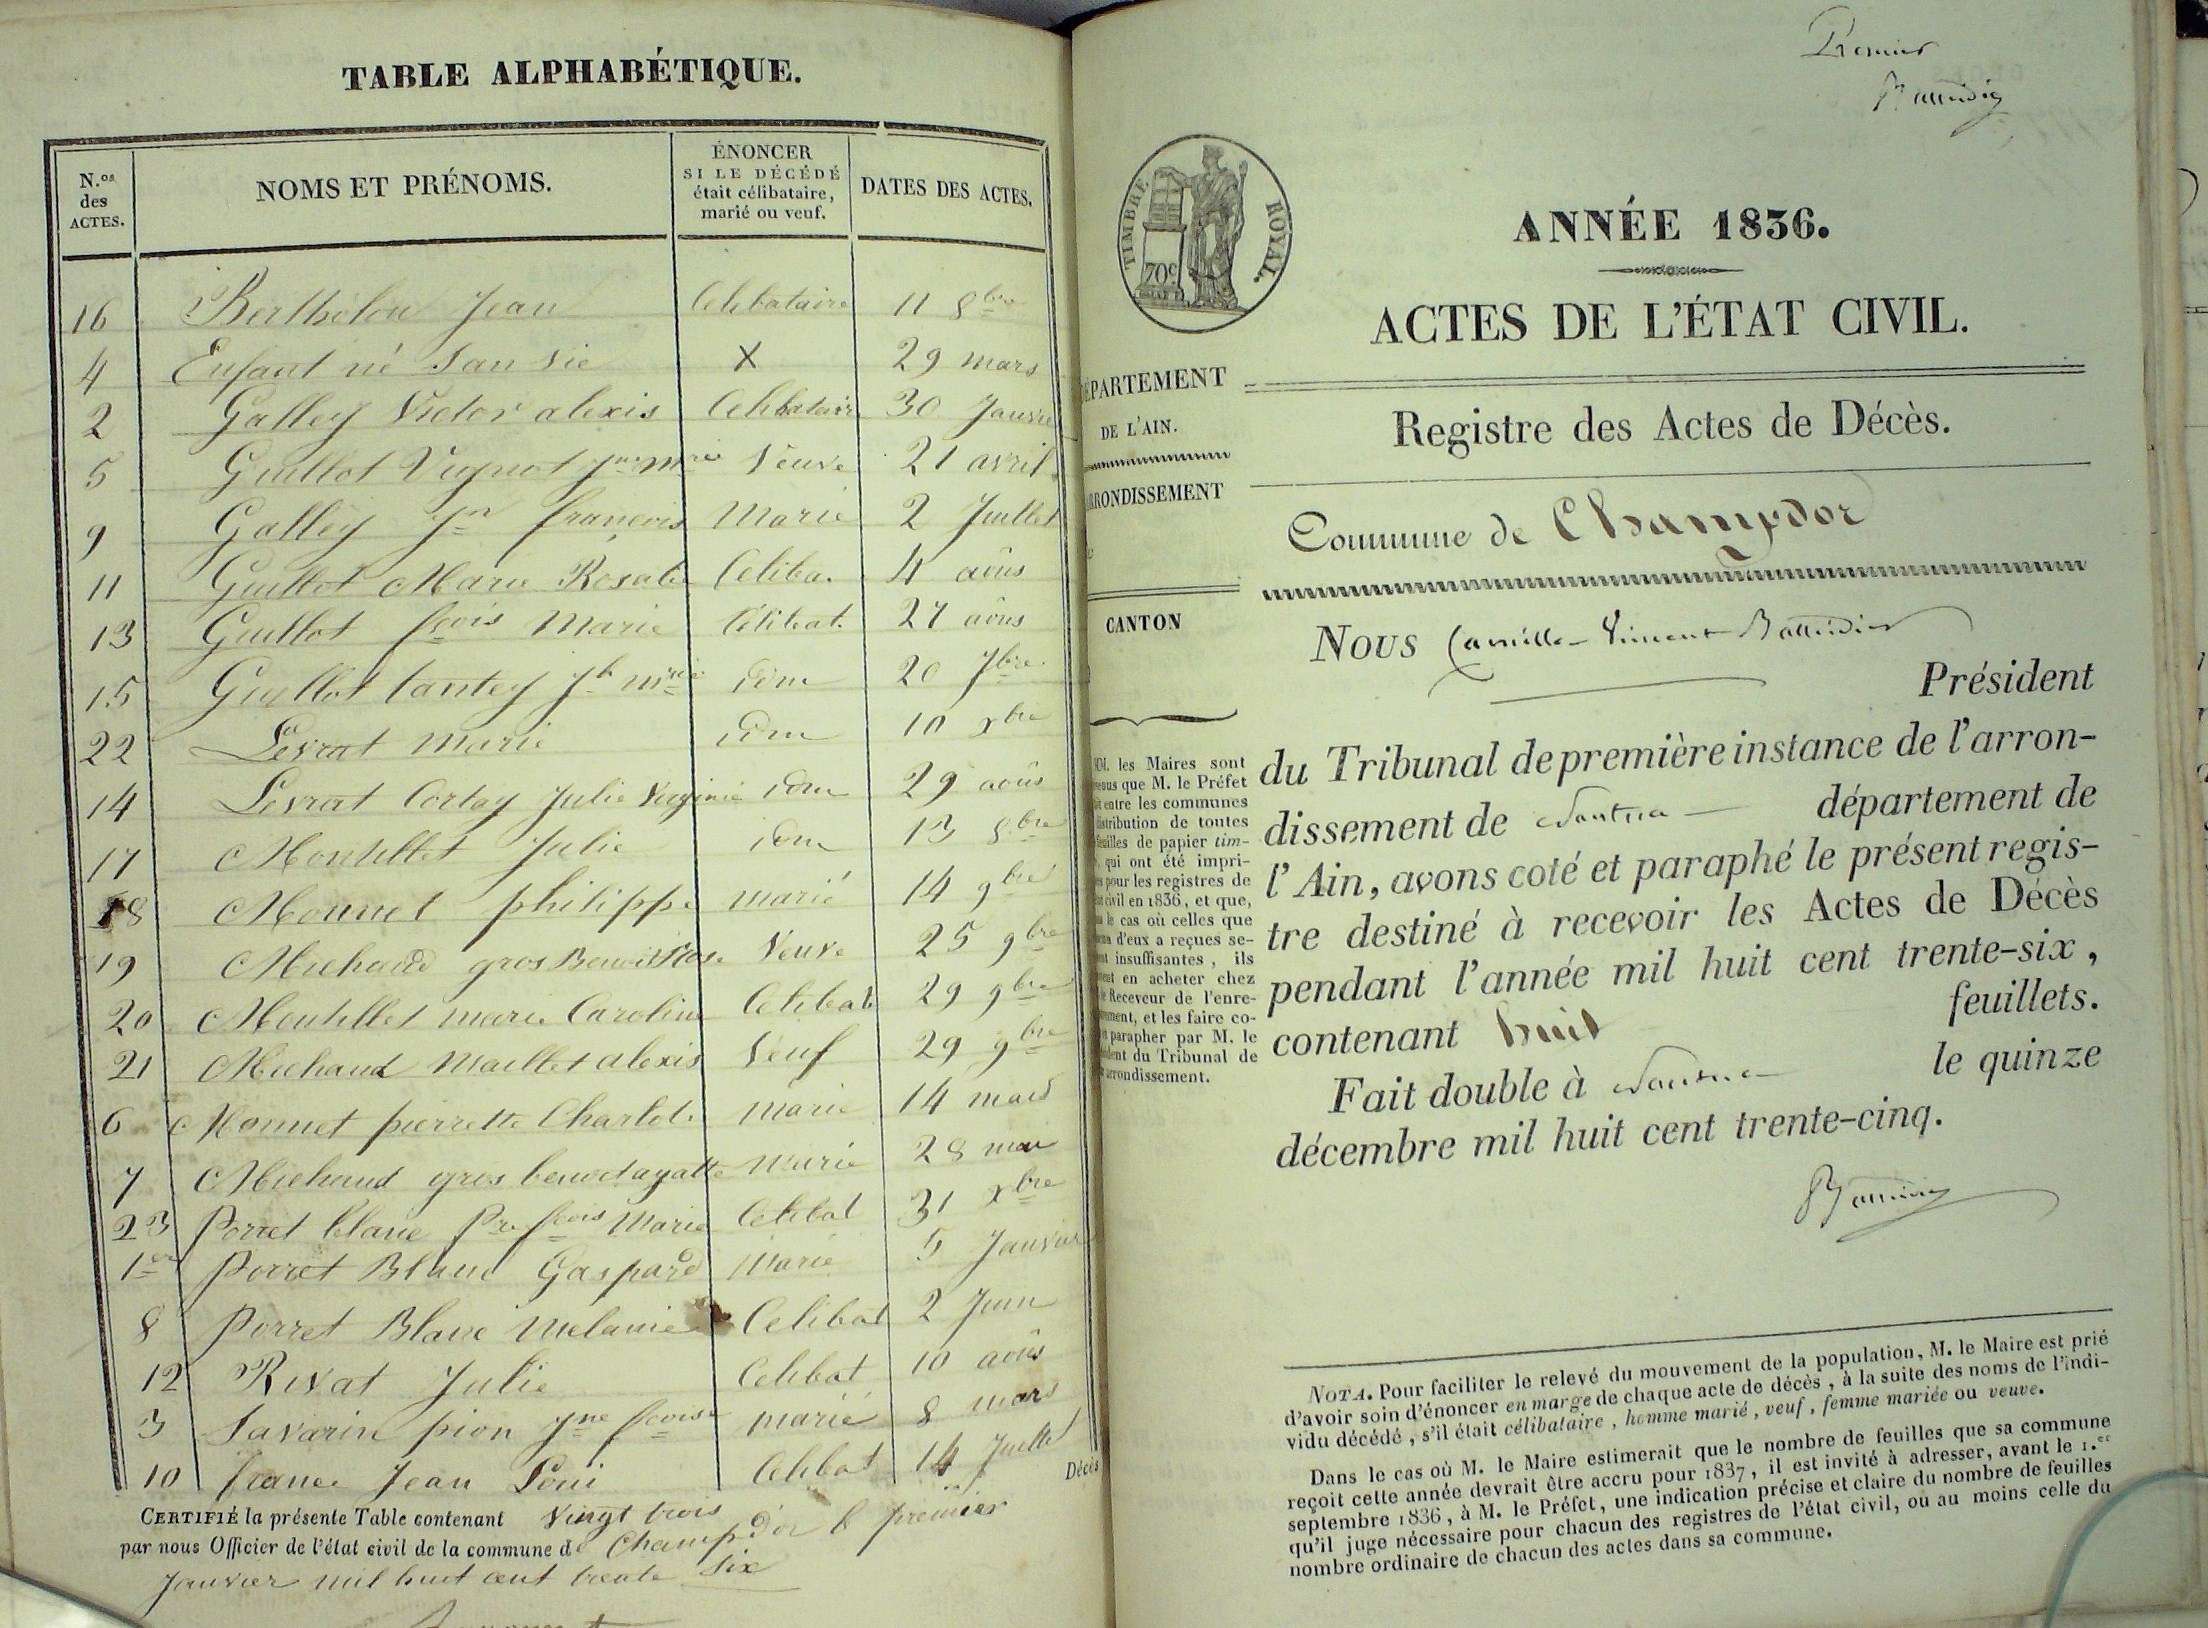 TABLE ALPHABÉTIQUE.
N.os des ACTES.
NOMS ET PRÉNOMS.
ÉNONCER
SI LE DÉCÉDÉ
était célibataire,
marié ou veuf.
DATES DES ACTES.
16 Berthélon Jean Célibataire 11 8bre
4 Enfant né San vie X 29 mars
2 Galley Victor alexis Célibataire 30 Janvie
5 Guillot Vugnot Jne mrie Veuve 21 avril
9 Galley Jn françois Marié 2 Juillet
11 Guillot Marie Rosali Céliba. 4 aôus
13 Guillot fcois Marie Célibat. 27 aôus
15 Guillot tantey Jh mrie idm 20 7bre
22 Levrat Marie idm 10 xbre
14 Levrat Cortay Julie Virginie idm 29 aoûs
17 Montillet Julie idm 13 8bre
18 Monnet philippe marié 14 9bre
19 Michaud gros Benoitose Veuve 25 9bre
20 Montillet marie Caroline Célibat 29 9bre
21 Michaud Maillet alexis Veuf 29 9bre
6 Monnet pierrette Charlot marié 14 mars
7 Michaud gros benoet agatte marié 28 mai
23 Porret blanc Pre fcois Marie Célibat 31 xbre
1er Porret Blanc Gaspard Marié 5 Janvier
8 Porret Blanc Melanie Célibat 2 Juin
12 Rivat Julie Célibat 10 aoûs
3 Savarin pion Jne fcoise marié 8 mars
10 france Jean Loui Célibat 14 Juillet
Décès
CERTIFIÉ la présente Table contenant Vingt trois
par nous Officier de l'état civil de la commune de Champdor le premier
Janvier mil huit cent trente six
Premier
TIMBRE ROYAL.
70c
ANNÉE 1836.
ACTES DE L'ÉTAT CIVIL.
ÉPARTEMENT
DE L'AIN.
RRONDISSEMENT
CANTON
Registre des Actes de Décès.
Commune de Champdor
Nous Camille-Vincent Battendier
Président
du Tribunal de première instance de l'arron-
dissement de Nantua département de
l'Ain, avons coté et paraphé le présent regis-
tre destiné à recevoir les Actes de Décès
pendant l'année mil huit cent trente-six,
contenant huit feuillets.
Fait double à Nantua le quinze
décembre mil huit cent trente-cinq.
MM. les Maires sont
que M. le Préfet
entre les communes
distribution de toutes
feuilles de papier tim-
qui ont été impri-
pour les registres de
civil en 1836, et que,
le cas où celles que
d'eux a reçues se-
insuffisantes, ils
en acheter chez
Receveur de l'enre-
ment, et les faire co-
parapher par M. le
du Tribunal de
arrondissement.
NOTA. Pour faciliter le relevé du mouvement de la population, M. le Maire est prié
d'avoir soin d'énoncer en marge de chaque acte de décès, à la suite des noms de l'indi-
vidu décédé, s'il était célibataire, homme marié, veuf, femme mariée ou veuve.
Dans le cas où M. le Maire estimerait que le nombre de feuilles que sa commune
reçoit cette année devrait être accru pour 1837, il est invité à adresser, avant le 1.er
septembre 1836, à M. le Préfet, une indication précise et claire du nombre de feuilles
qu'il juge nécessaire pour chacun des registres de l'état civil, ou au moins celle du
nombre ordinaire de chacun des actes dans sa commune.